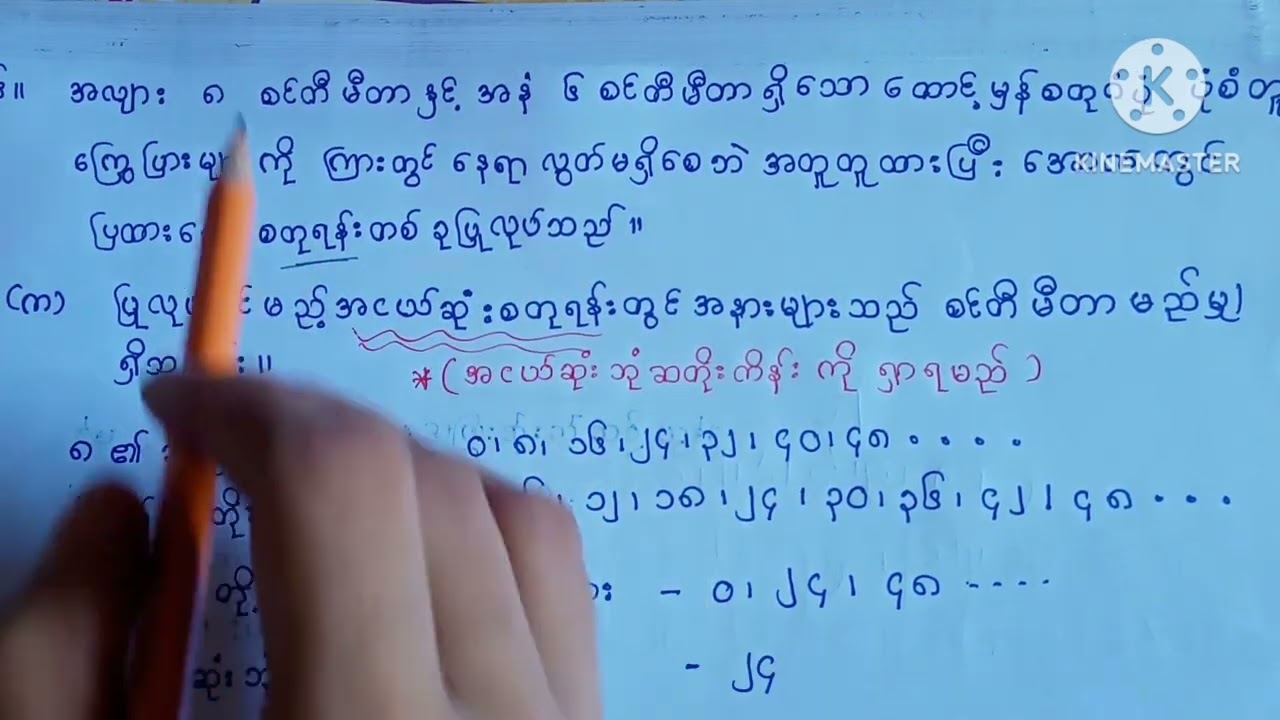 ။ အလျား ၈ စင်တီမီတာနှင့် အနံ ၆ စင်တီမီတာရှိသော ထောင့်မှန်စတုဂံ ပုံစံတူ
ကြွေပြားများကို ကြားတွင် နေရာလွတ်မရှိစေဘဲ အတူတူထားပြီး
ပြထား စတုရန်းတစ်ခုပြုလုပ်သည်။
(က) အငယ်ဆုံးစတုရန်းတွင် အနားများသည် စင်တီမီတာမည်မျှ
* (အငယ်ဆုံးဘုံဆတိုးကိန်းကို ရှာရမည်)
၈ ၏ ၀၊ ၈၊ ၁၆၊ ၂၄၊ ၃၂၊ ၄၀၊ ၄၈ ....
၁၂၊ ၁၈၊ ၂၄၊ ၃၀၊ ၃၆၊ ၄၂၊ ၄၈ ...
တို့ - ၀၊ ၂၄၊ ၄၈ ----
ဆုံး - ၂၄
KINEMASTER